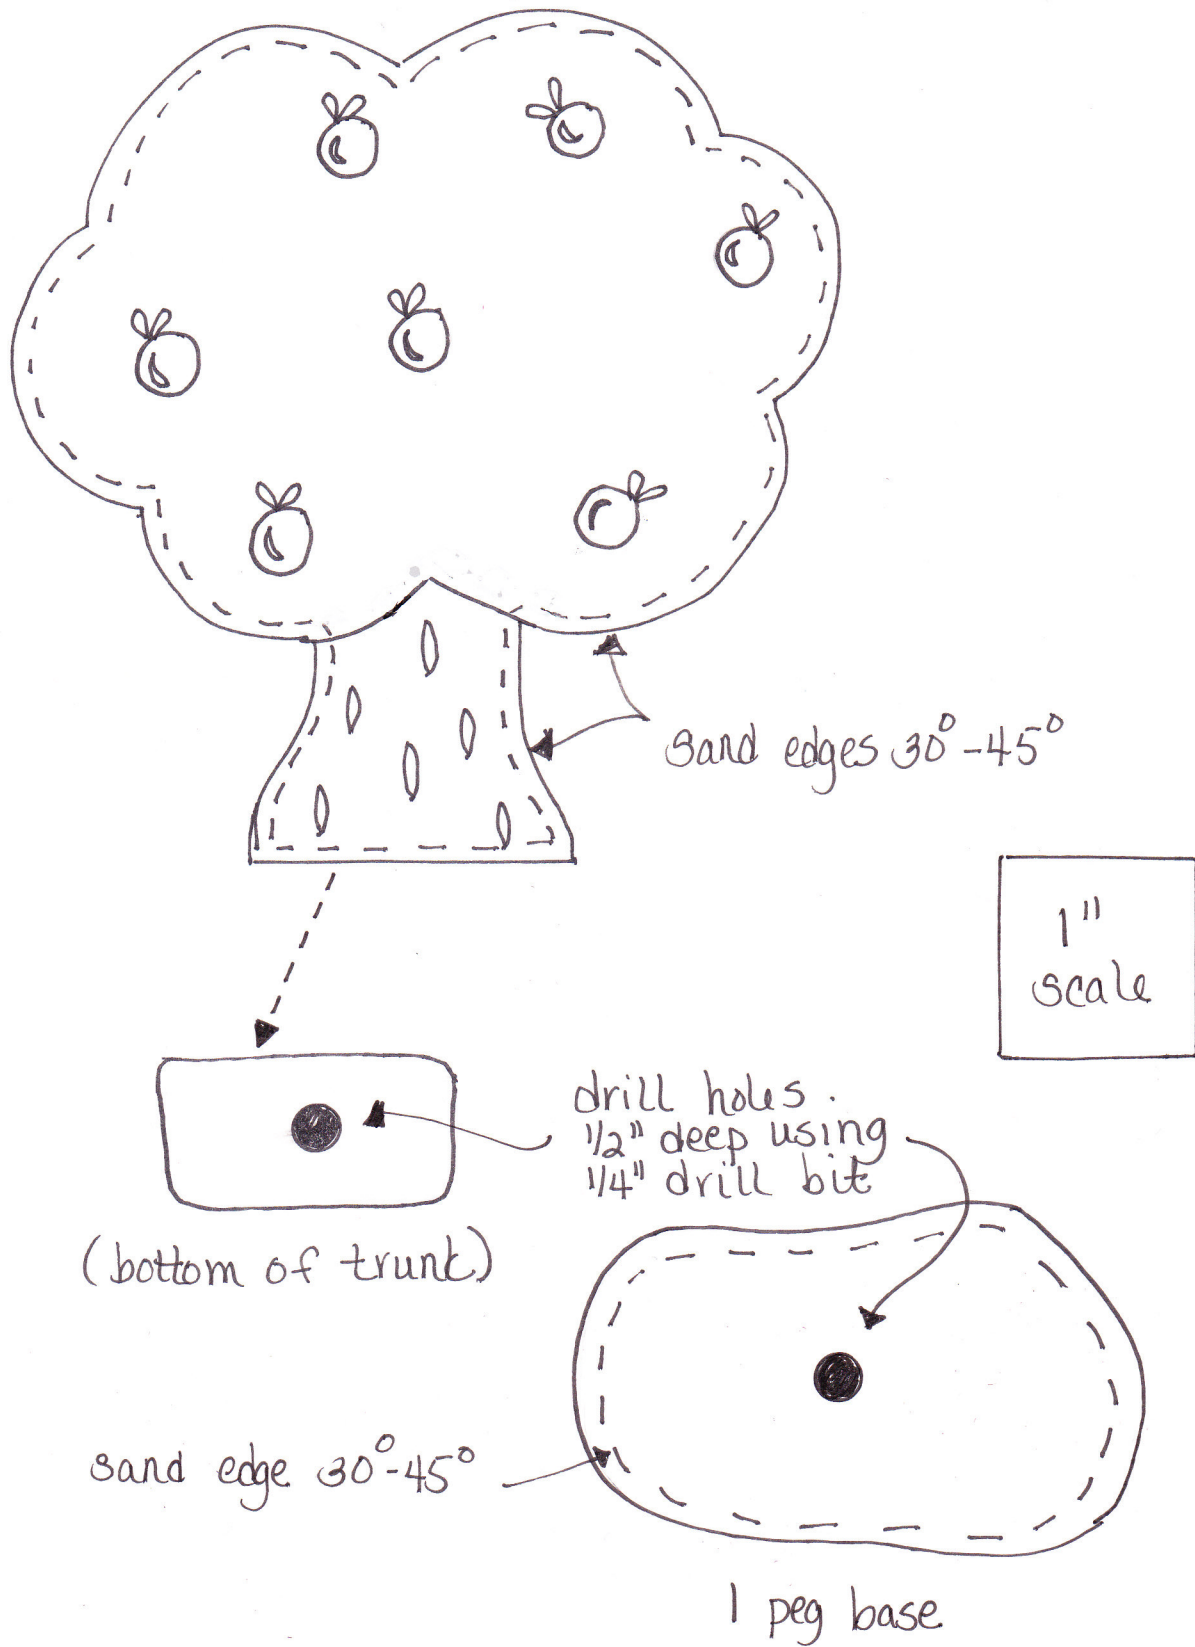 sand edges 30°-45°
1"
scale
drill holes.
1/2" deep using
1/4" drill bit
(bottom of trunk)
sand edge 30°-45°
1 peg base